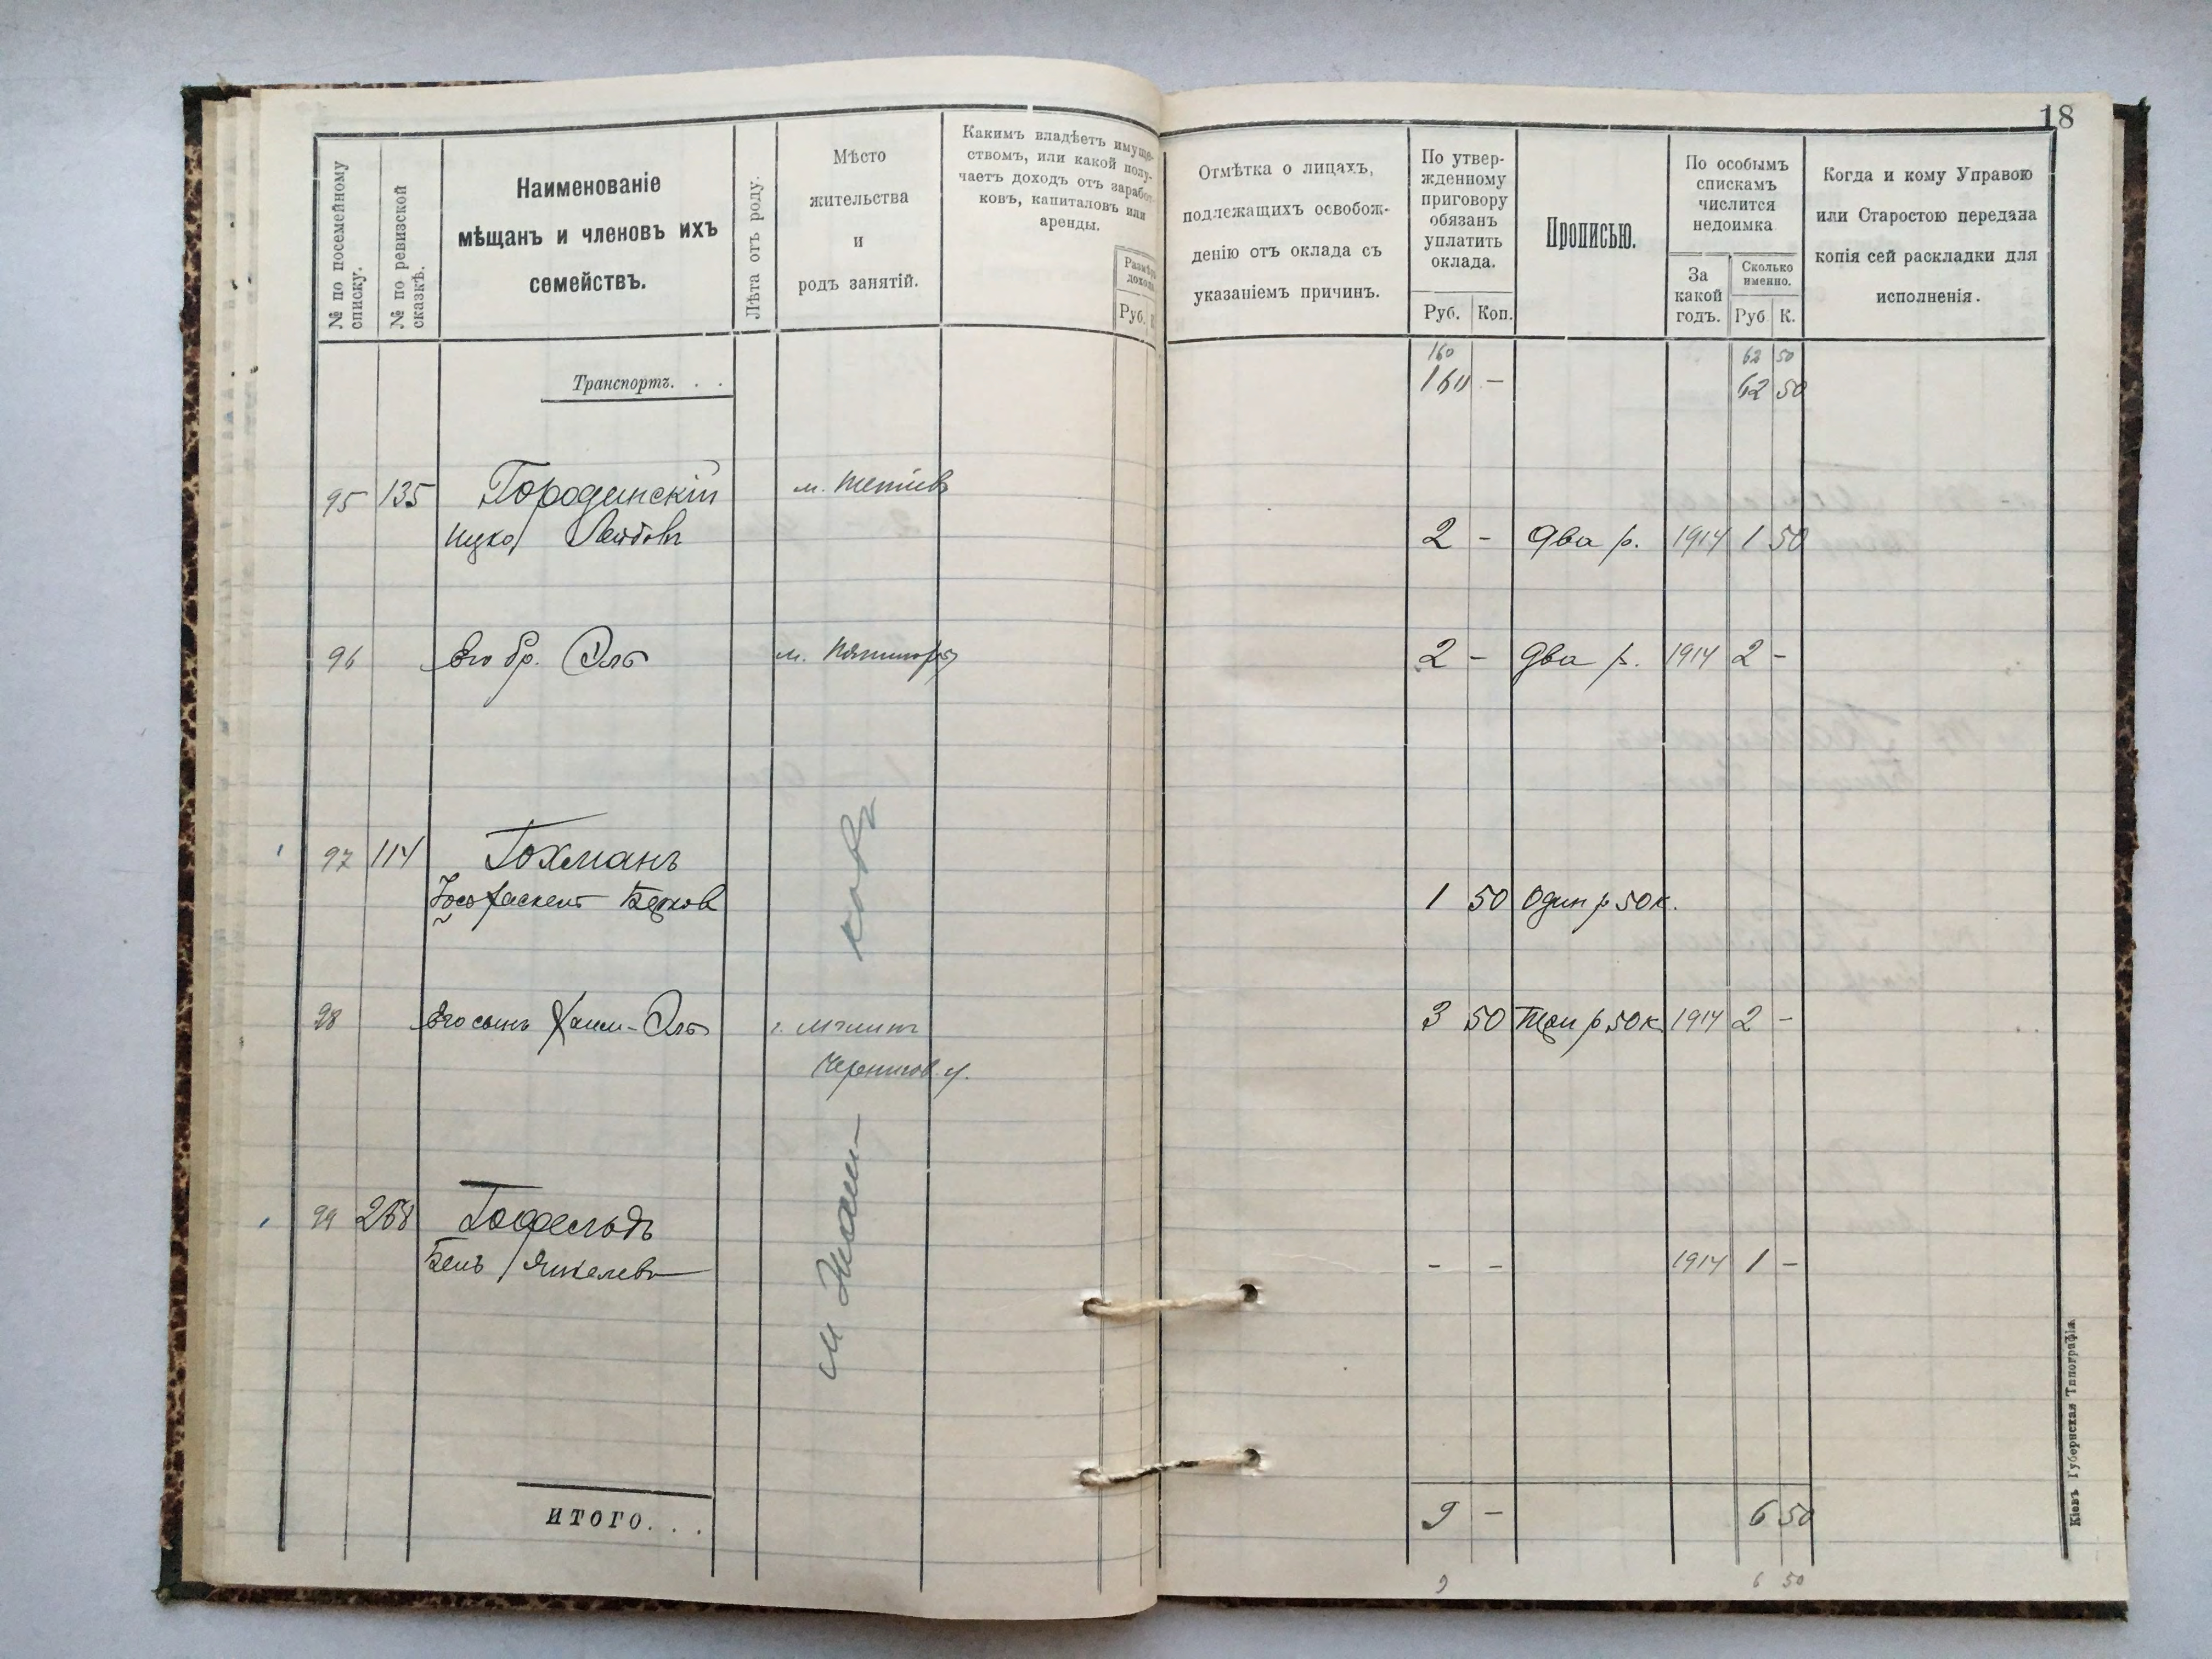 18
№ по посемейному списку.
№ по ревизской сказкѣ.
Наименованіе
мѣщанъ и членовъ ихъ
семействъ.
Лѣта отъ роду.
Мѣсто
жительства
и
родъ занятій.
Какимъ владѣетъ имуще-
ствомъ, или какой полу-
чаетъ доходъ отъ заработ-
ковъ, капиталовъ или
аренды.
Руб.
Отмѣтка о лицахъ,
подлежащихъ освобож-
денію отъ оклада съ
указаніемъ причинъ.
По утвер-
жденному
приговору
обязанъ
уплатить
оклада.
Руб. Коп.
Прописью.
По особымъ
спискамъ
числится
недоимка
За
какой
годъ.
Сколько
именно.
Руб К.
Когда и кому Управою
или Старостою передана
копія сей раскладки для
исполненія.
160 62 50
Транспортъ. . . 160 - 62 50
95 135 Городинскій м. Тетіев
Ицко Лейбовъ 2 - два р. 1914 1 50
96 Его бр. Эль м. 2 - два р. 1914 2 -
97 114 Гохманъ
Берков 1 50 Один р 50 к.
98 Его сынъ Хаим-Эль г. Мглинъ 3 50 Три р 50 к 1914 2 -
Чернигов. г.
м. Жаш-
ковъ
99 268 Гофельдъ
Бень Янкелевъ - - 1914 1 -
ИТОГО. . . 9 - 6 50
9 6 50
Кіевъ Губернская Типографія.